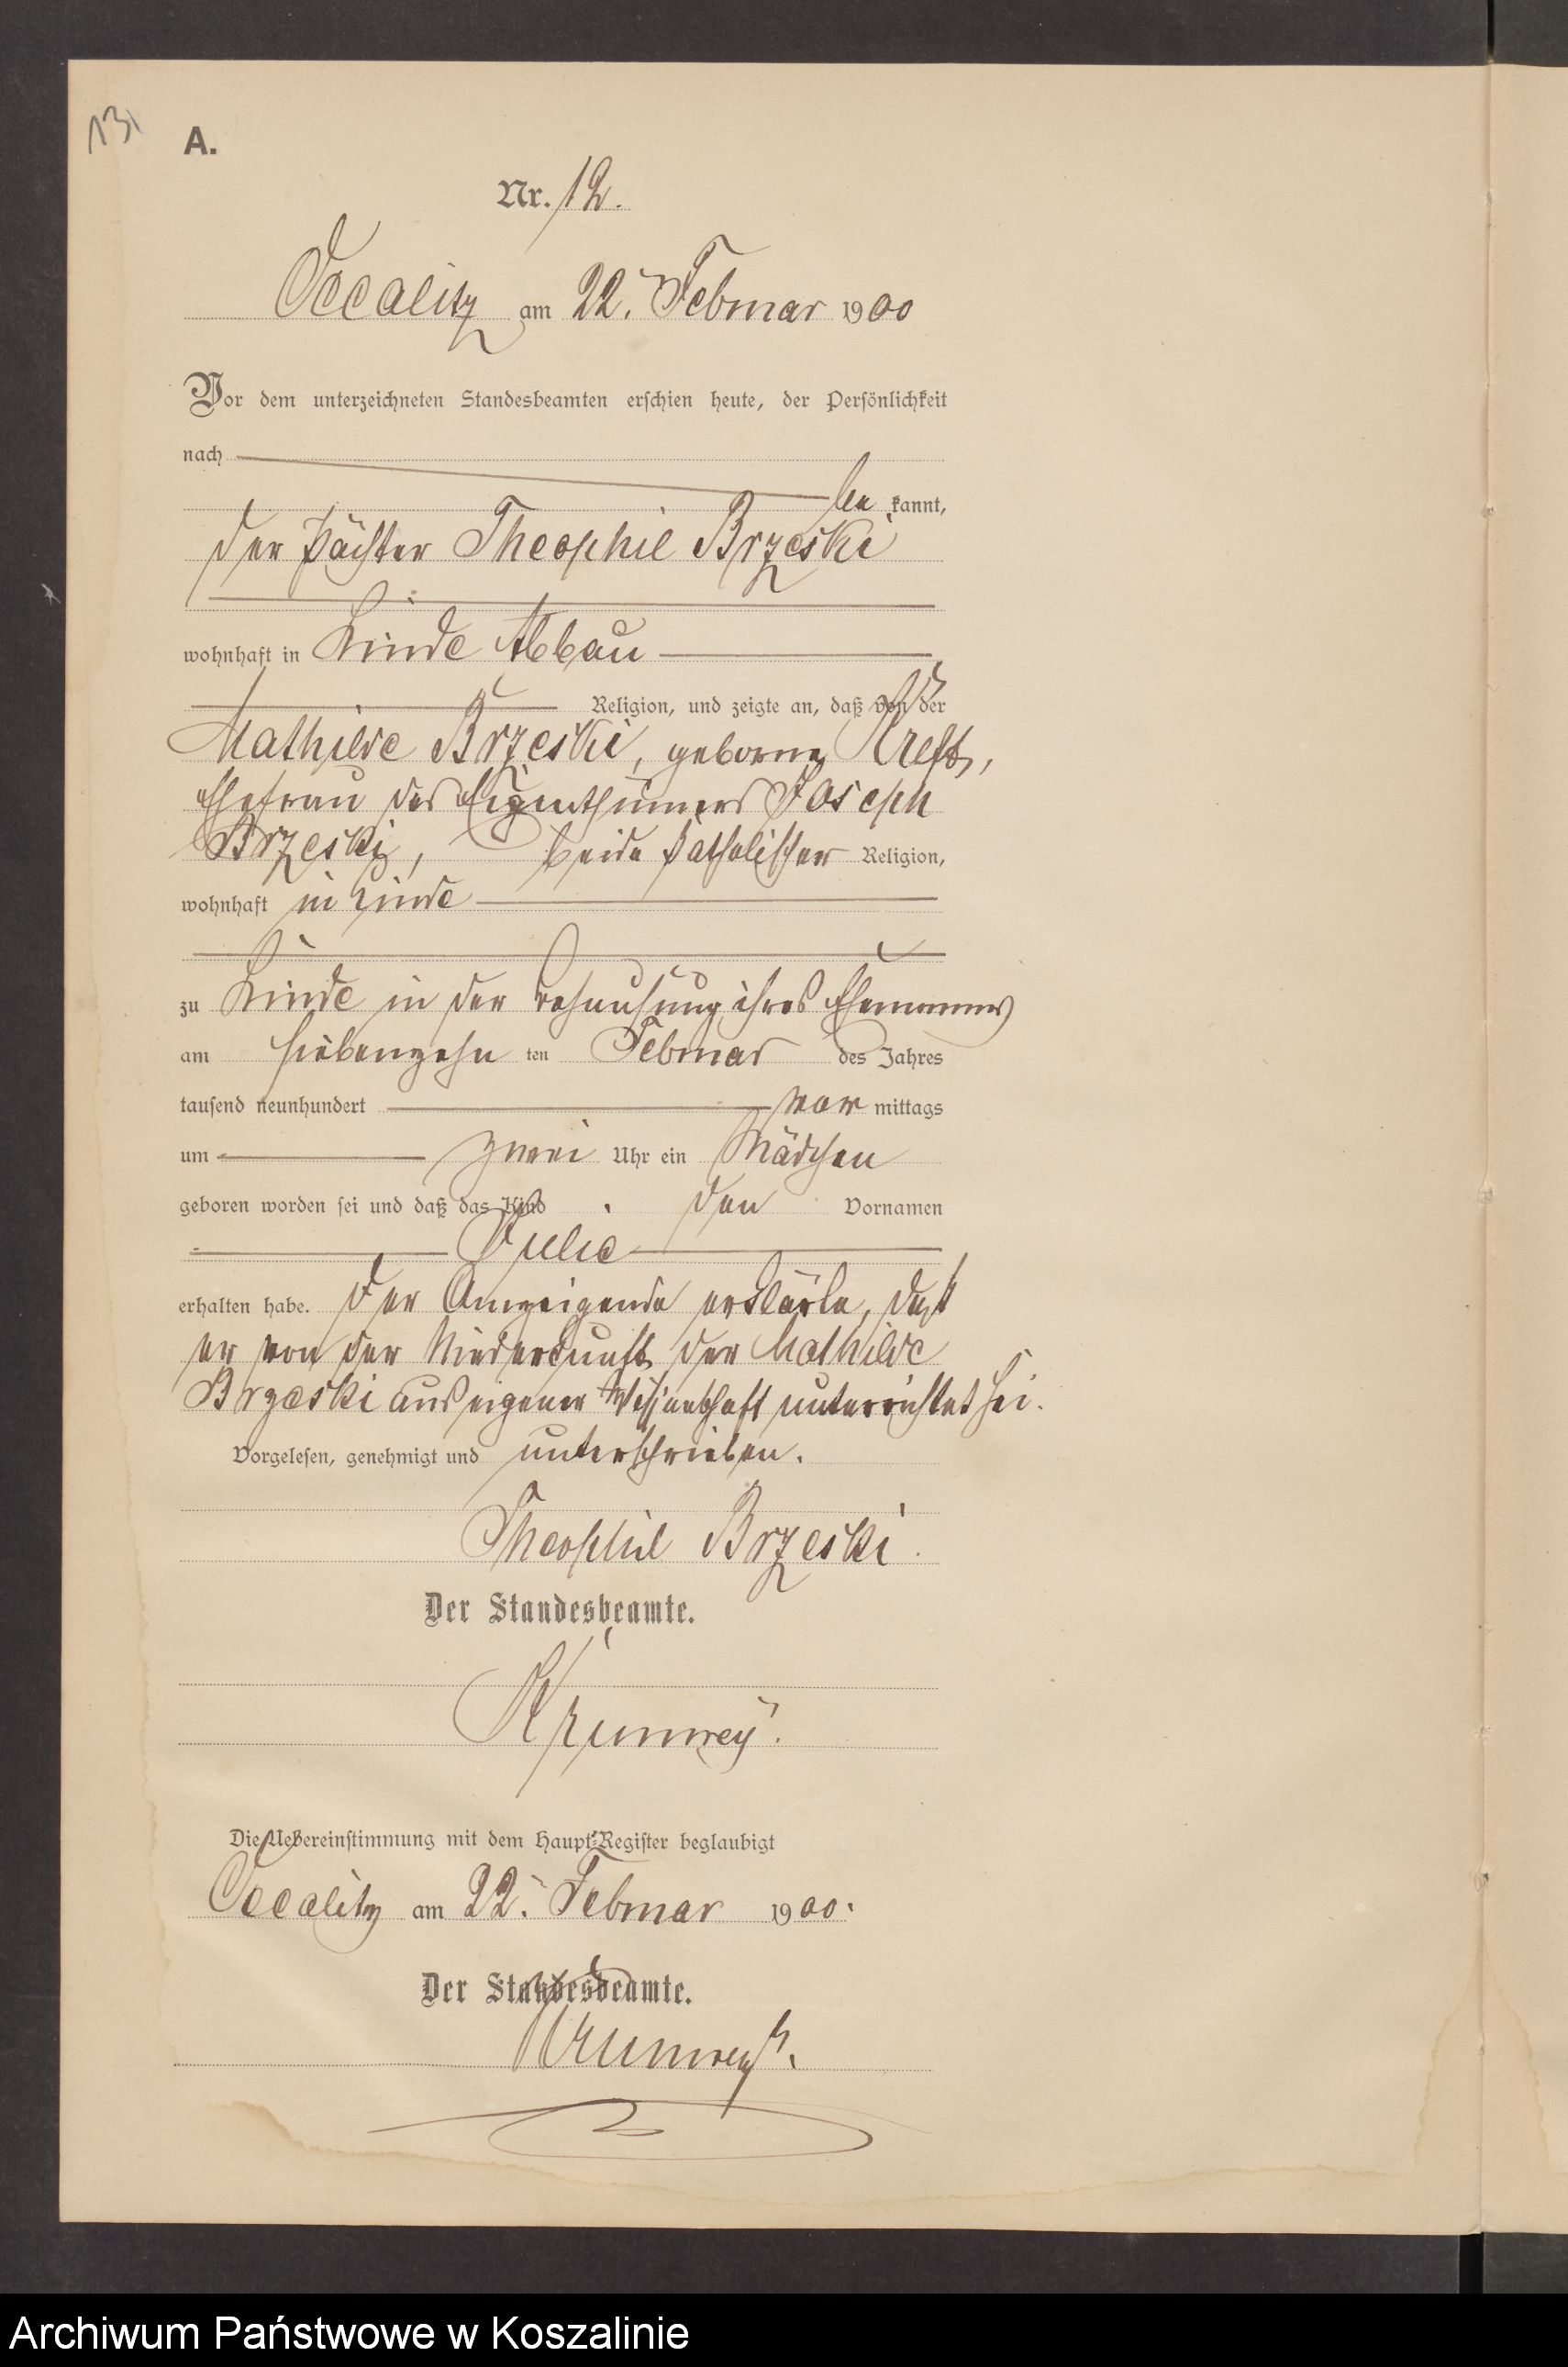 13
A.
Nr. 12.
Occalitz am 22. Februar 1900
Vor dem unterzeichneten Standesbeamten erschien heute, der Persönlichkeit
nach
be kannt,
der Pächter Theophil Brzeski
wohnhaft in Linde Abbau
Religion, und zeigte an, daß von der
Mathilde Brzeski, geborne Kreft,
Ehefrau des Eigenthümers Joseph
Brzeski, beide katholischer Religion,
wohnhaft in Linde
zu Linde in der Behausung ihres Ehemannes
am siebenzehn ten Februar des Jahres
tausend neunhundert vor mittags
um zwei Uhr ein Mädchen
geboren worden sei und daß das Kind den Vornamen
Julie
erhalten habe. Der Anzeigende erklärte, daß
er von der Niederkunft der Mathilde
Brzeski aus eigener Wissenschaft unterrichtet sei.
Vorgelesen, genehmigt und unterschrieben.
Theophil Brzeski.
Der Standesbeamte.
Die Uebereinstimmung mit dem Haupt-Register beglaubigt
Occalitz am 22. Februar 1900.
Der Standesbeamte.
Archiwum Państwowe w Koszalinie